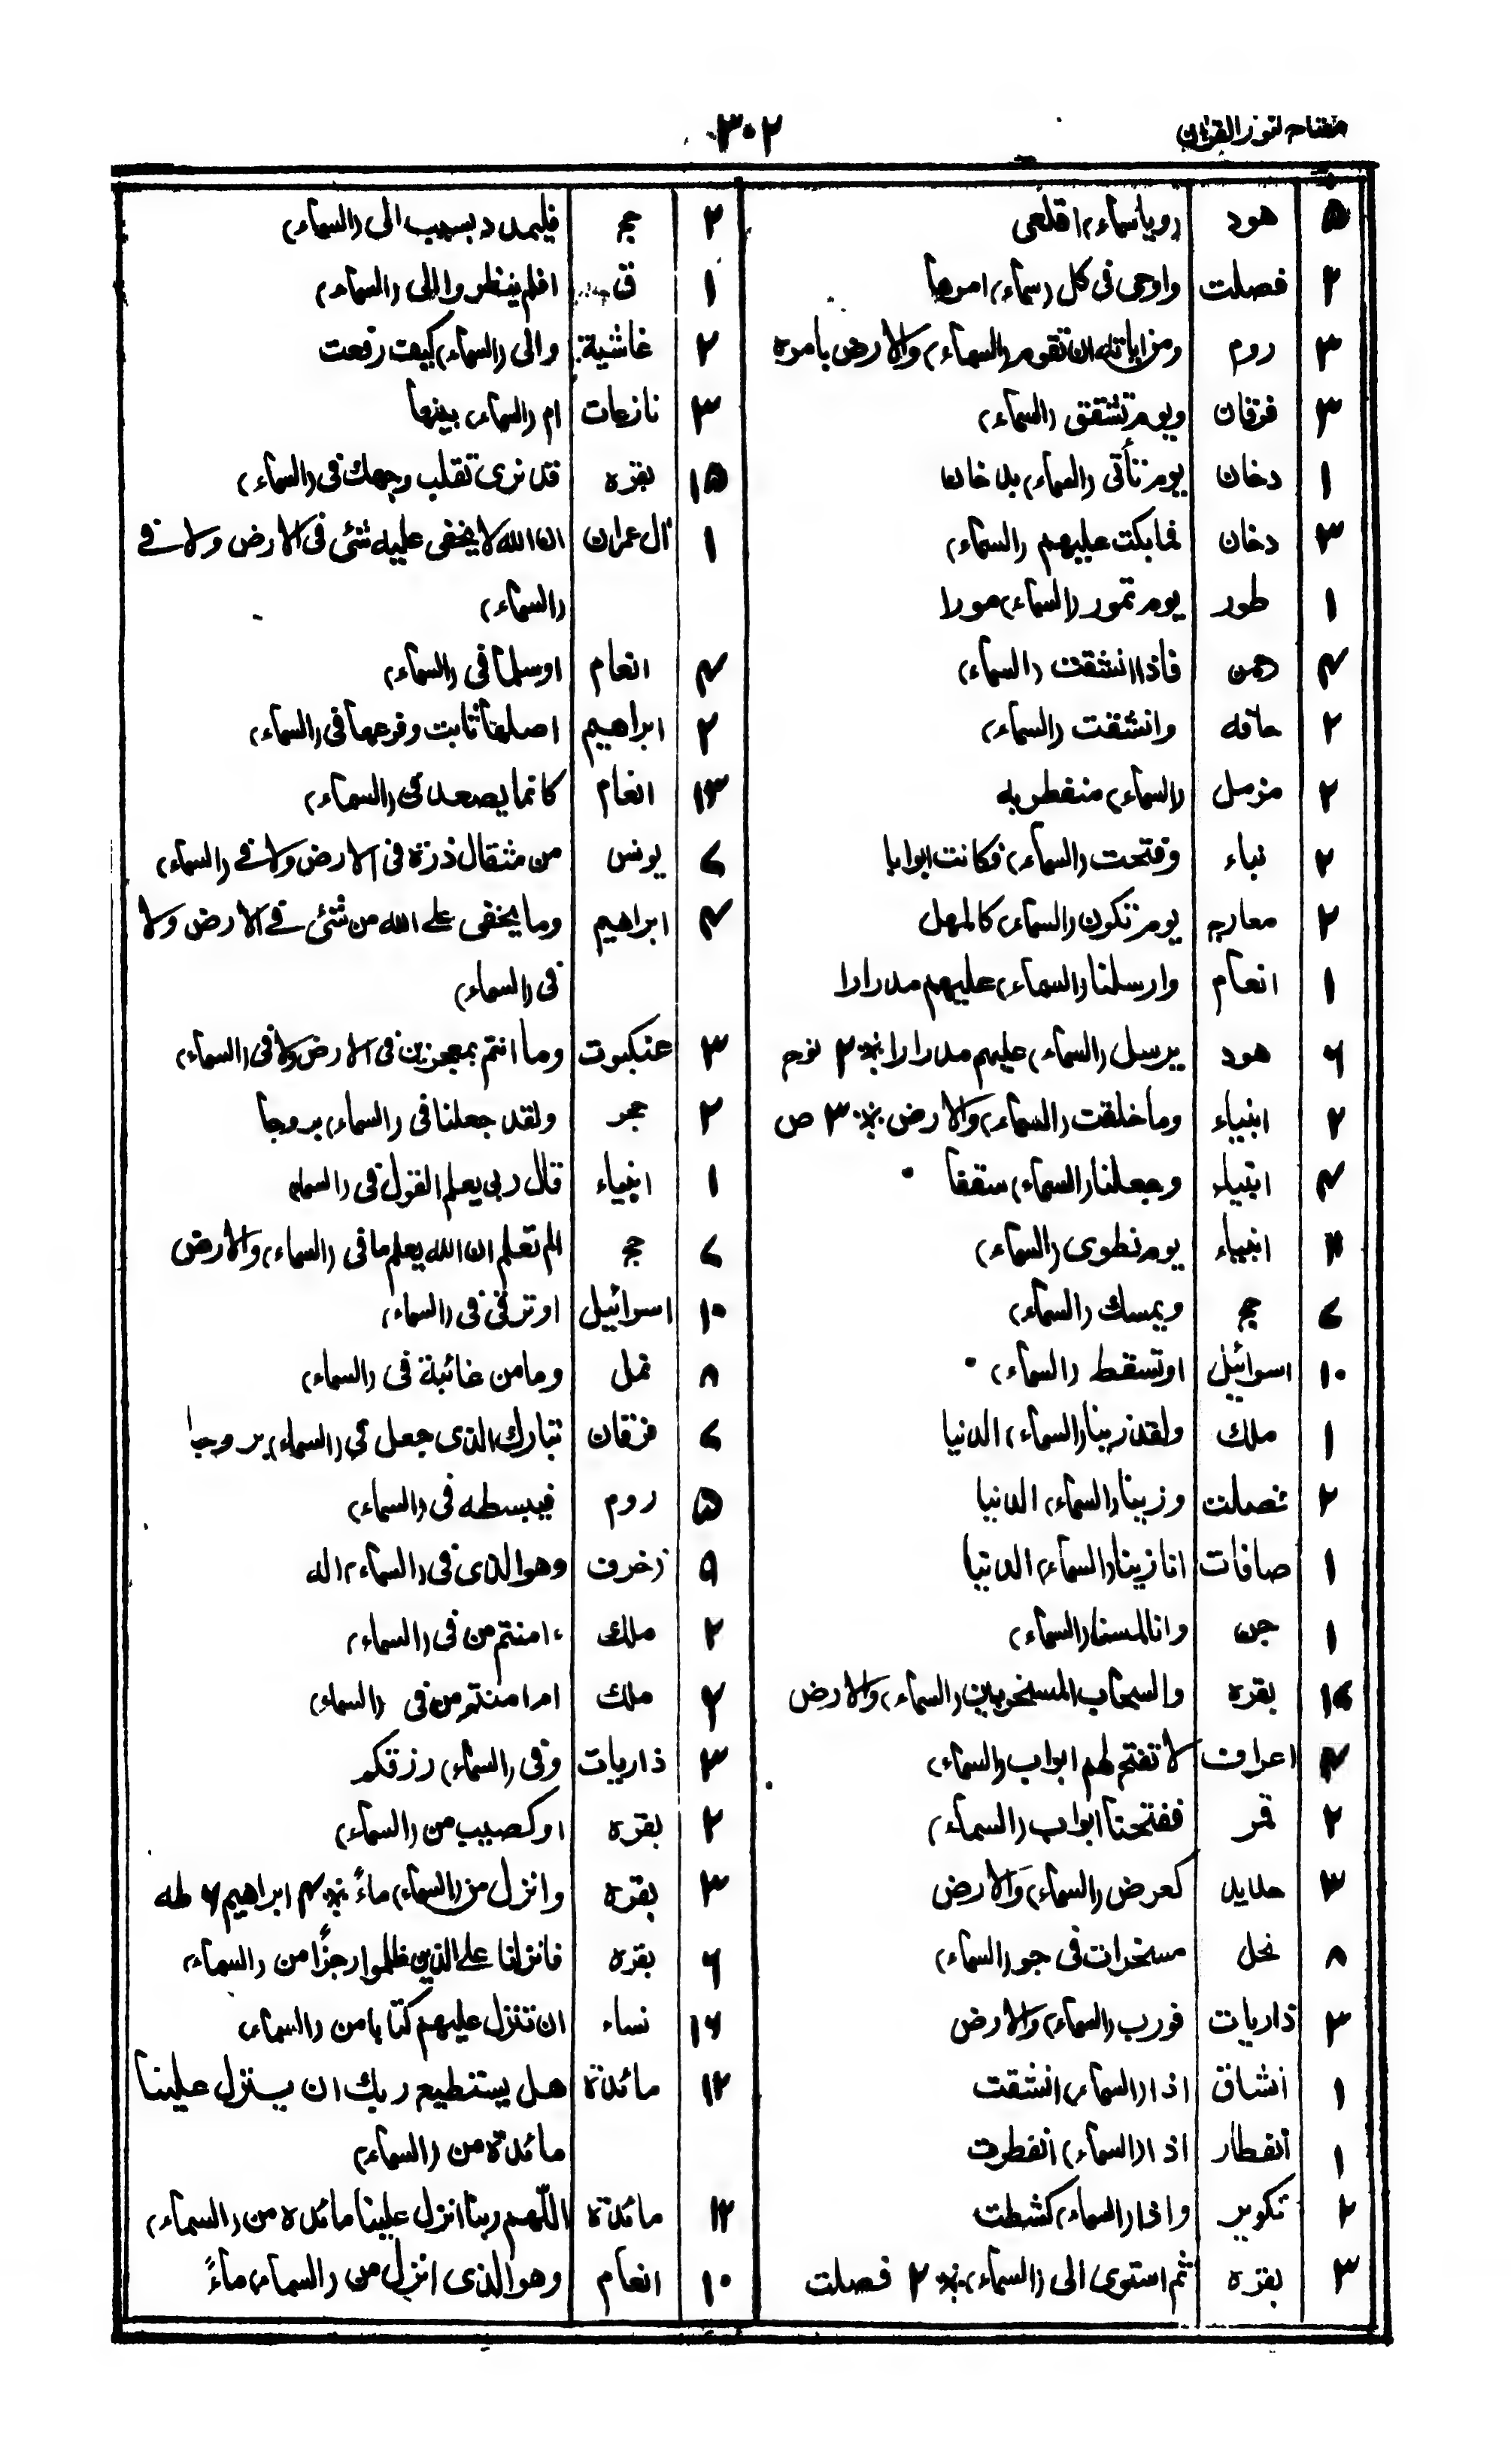 مفتاح كنوز القران
٣٠٢
٥ هود (ويا سماء) اقلعى
٢ فصلت واوحى فى كل (سماء) امرها
٣ روم ومن اياته ان تقوم (السماء) والارض بامره
٣ فرقان ويوم تشقق (السماء)
١ دخان يوم تأتى (السماء) بدخان
٣ دخان فما بكت عليهم (السماء)
١ طور يوم تمور (السماء) مورا
٤ رحمن فاذا انشقت (السماء)
٢ حاقه وانشقت (السماء)
٢ مزمل (السماء) منفطر به
٢ نباء وفتحت (السماء) فكانت ابوابا
٢ معارج يوم تكون (السماء) كالمهل
١ انعام وارسلنا (السماء) عليهم مدرارا
٦ هود يرسل (السماء) عليهم مدرارا ٢ نوح
٢ انبياء وما خلقت (السماء) والارض ٣ ص
٤ انبياء وجعلنا (السماء) سقفا
انبياء يوم نطوى (السماء)
٧ حج ويمسك (السماء)
١٠ اسرائيل او تسقط (السماء)
١ ملك ولقد زينا (السماء) الدنيا
٢ فصلت وزينا (السماء) الدنيا
١ صافات انا زينا (السماء) الدنيا
١ جن وانا لمسنا (السماء)
بقره والسحاب المسخر بين (السماء) والارض
٤ اعراف لا تفتح لهم ابواب (السماء)
٢ قمر ففتحنا ابواب (السماء)
٣ حديد كعرض (السماء) والارض
٨ نحل مسخرات فى جو (السماء)
٣ ذاريات فورب (السماء) والارض
١ انشاق اذا (السماء) انشقت
١ انفطار اذا (السماء) انفطرت
٢ تكوير واذا (السماء) كشطت
٣ بقره ثم استوى الى (السماء) ٢ فصلت
٢ حج فليمدد بسبب الى (السماء)
١ ق افلم ينظروا الى (السماء)
٢ غاشية والى (السماء) كيف رفعت
٣ نازعات ام (السماء) بينها
١٥ بقره قد نرى تقلب وجهك فى (السماء)
١ آل عمران ان الله لا يخفى عليه شئ فى الارض ولا فى
(السماء)
٤ انعام اوسلما فى (السماء)
٢ ابراهيم اصلها ثابت وفرعها فى (السماء)
١٣ انعام كانما يصعد فى (السماء)
٧ يونس من مثقال ذرة فى الارض ولا فى (السماء)
٤ ابراهيم وما يخفى على الله من شئ فى الارض ولا
فى (السماء)
٣ عنكبوت وما انتم بمعجزين فى الارض ولا فى (السماء)
٢ حجر ولقد جعلنا فى (السماء) بروجا
١ انبياء قال ربى يعلم القول فى (السماء
٧ حج الم تعلم ان الله يعلم ما فى (السماء) والارض
١٠ اسرائيل او ترقى فى (السماء)
٨ نمل وما من غائبة فى (السماء)
٧ فرقان تبارك الذى جعل فى (السماء) بروجا
٥ روم فيبسطه فى (السماء)
٩ زخرف وهو الذى فى (السماء) اله
٢ ملك ءامنتم من فى (السماء)
٢ ملك ام امنتم من فى (السماء)
٣ ذاريات وفى (السماء) رزقكم
٢ بقره اوكصيب من (السماء)
٣ بقره وانزل من (السماء) ماءً ٤ ابراهيم ٦ طه
٦ بقره فانزلنا على الذين ظلموا رجزًا من (السماء)
١٦ نساء ان تنزل عليهم كتابا من (السماء)
١٢ مائدة هل يستطيع ربك ان ينزل علينا
مائدة من (السماء)
١٢ مائدة اللّهم ربنا انزل علينا مائدة من (السماء)
١٠ انعام وهو الذى انزل من (السماء) ماءً